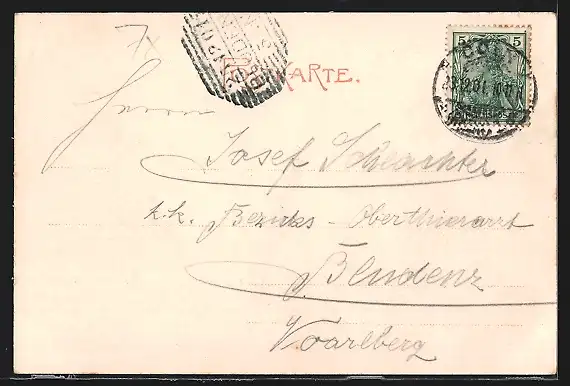 7x
POSTKARTE.
5 5
Herrn
Josef Schlachter
k.k. Bezirks-Oberthierarzt
Bludenz
Voarlberg